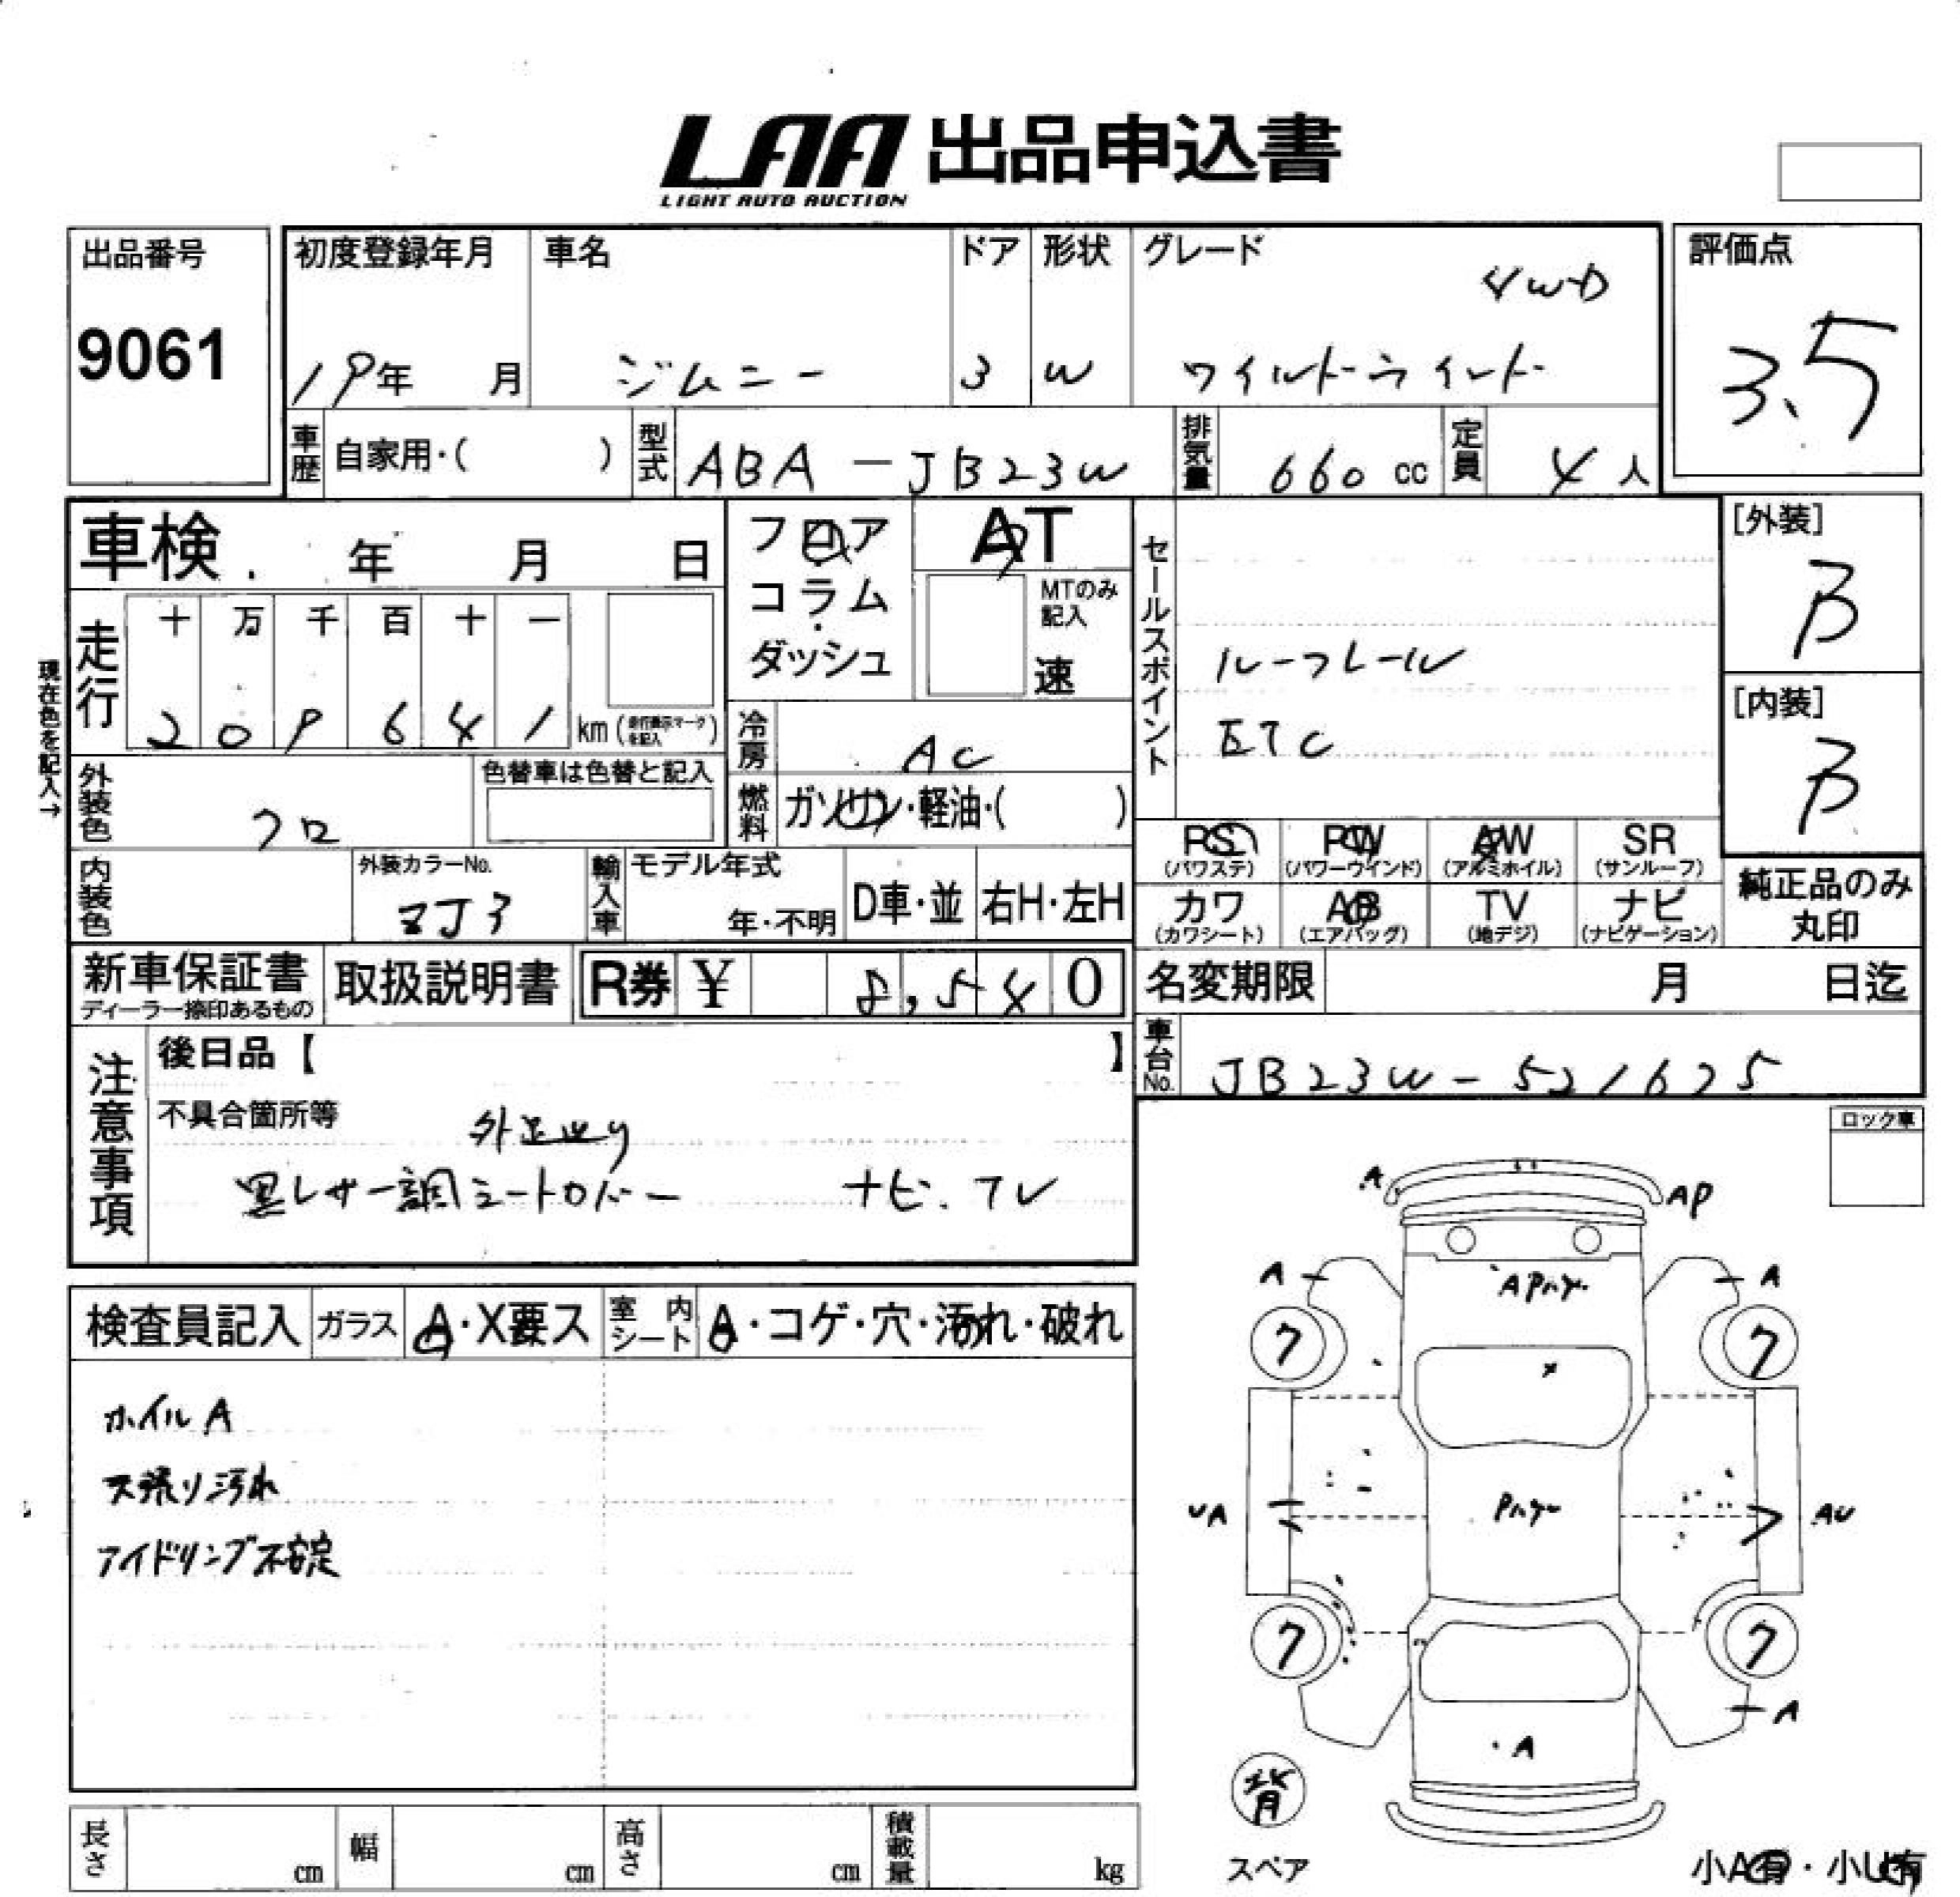 LAA 出品申込書
LIGHT AUTO AUCTION
出品番号
9061
初度登録年月
19年 月
車名
ジムニー
ドア
3
形状
W
グレード
4WD
ワイルドウインド
評価点
3.5
車歴 自家用・( )
型式 ABA-JB23W
排気量 660 cc
定員 4 人
車検 年 月 日
フロア
コラム
ダッシュ
AT
MTのみ記入
速
走行
十 万 千 百 十 一
2 0 9 6 4 1 km (走行表示マークを記入)
現在色を記入→
冷房 AC
燃料 ガソリン・軽油・( )
外装色 クロ
色替車は色替と記入
内装色
外装カラーNo.
ZJ3
輸入車
モデル年式
年・不明
D車・並
右H・左H
セールスポイント
ルーフレール
ETC
[外装]
B
[内装]
B
PS
(パワステ)
PW
(パワーウインド)
AW
(アルミホイル)
SR
(サンルーフ)
カワ
(カワシート)
AB
(エアバッグ)
TV
(地デジ)
ナビ
(ナビゲーション)
純正品のみ
丸印
新車保証書
ディーラー捺印あるもの
取扱説明書
R券 ¥ 8,540
名変期限 月 日迄
車台No. JB23W-521675
注意事項
後日品【 】
不具合箇所等
黒レザー調シートカバー ナビ.TV
ロック車
検査員記入
ガラス A・X要ス
室内シート A・コゲ・穴・汚れ・破れ
ホイルA
天張り汚れ
アイドリング不安定
A
AP
A
A
7
7
UA
AU
7
7
A
A
背
スペア
小A有・小U有
長さ cm
幅 cm
高さ cm
積載量 kg